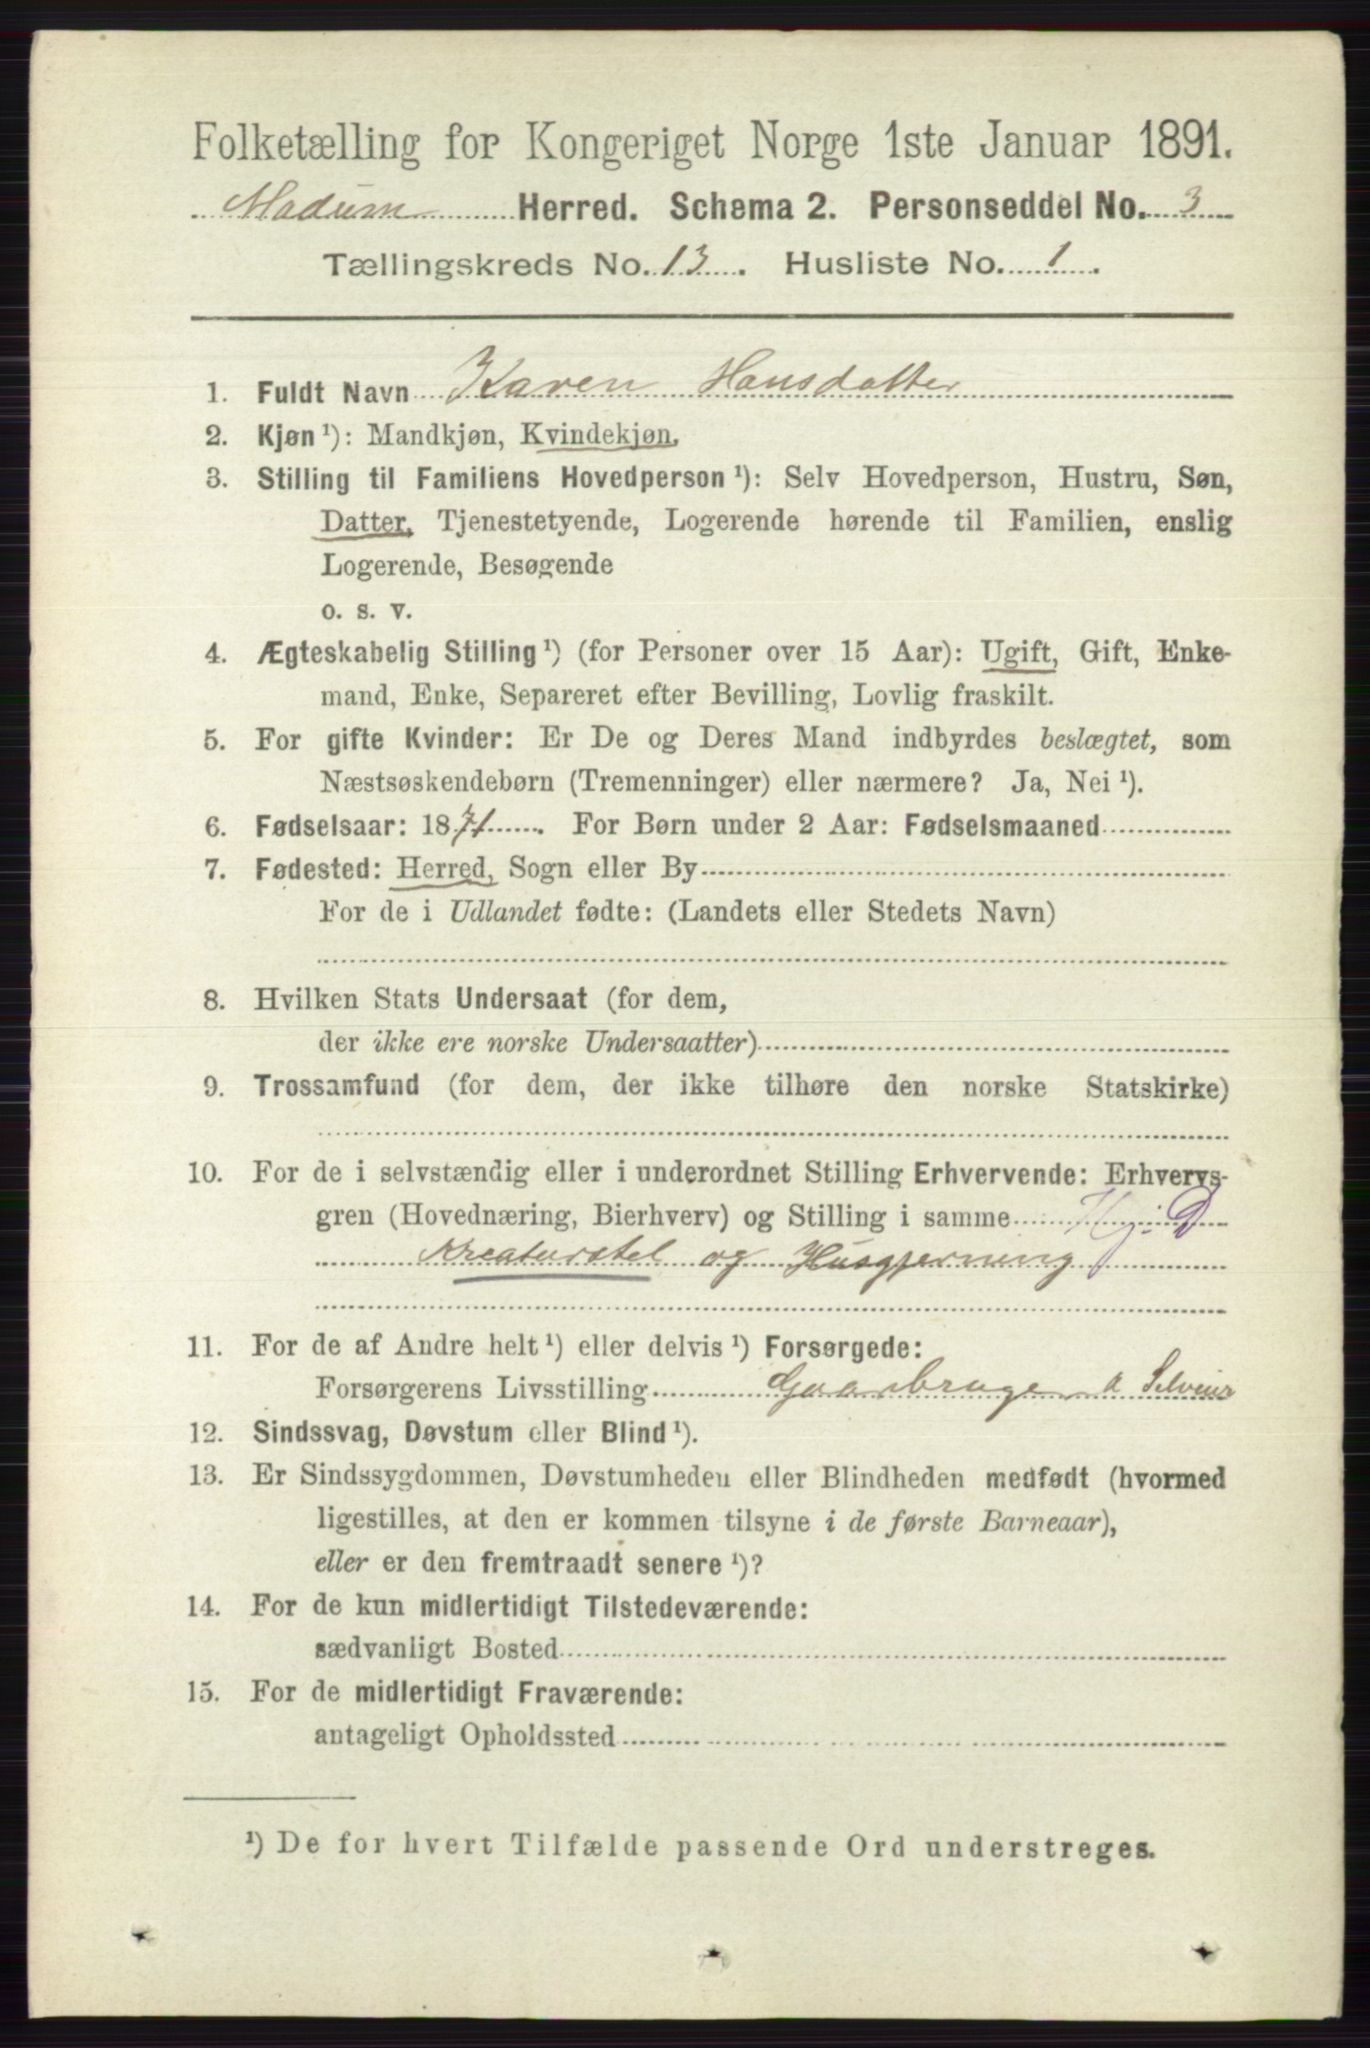 Folketælling for Kongeriget Norge 1ste Januar 1891.
Modum Herred. Schema 2. Personseddel No. 3
Tællingskreds No. 13. Husliste No. 1.
1. Fuldt Navn Karen Hansdatter
2. Kjøn ¹): Mandkjøn, Kvindekjøn.
3. Stilling til Familiens Hovedperson ¹): Selv Hovedperson, Hustru, Søn,
Datter, Tjenestetyende, Logerende hørende til Familien, enslig
Logerende, Besøgende
o. s. v.
4. Ægteskabelig Stilling ¹) (for Personer over 15 Aar): Ugift, Gift, Enke-
mand, Enke, Separeret efter Bevilling, Lovlig fraskilt.
5. For gifte Kvinder: Er De og Deres Mand indbyrdes beslægtet, som
Næstsøskendebørn (Tremenninger) eller nærmere? Ja, Nei ¹).
6. Fødselsaar: 1871. For Børn under 2 Aar: Fødselsmaaned
7. Fødested: Herred, Sogn eller By
For de i Udlandet fødte: (Landets eller Stedets Navn)
8. Hvilken Stats Undersaat (for dem,
der ikke ere norske Undersaatter)
9. Trossamfund (for dem, der ikke tilhøre den norske Statskirke)
10. For de i selvstændig eller i underordnet Stilling Erhvervende: Erhvervs-
gren (Hovednæring, Bierhverv) og Stilling i samme Hj. D
Kreaturstel og Husgjerning
11. For de af Andre helt ¹) eller delvis ¹) Forsørgede:
Forsørgerens Livsstilling
12. Sindssvag, Døvstum eller Blind ¹).
13. Er Sindssygdommen, Døvstumheden eller Blindheden medfødt (hvormed
ligestilles, at den er kommen tilsyne i de første Barneaar),
eller er den fremtraadt senere ¹)?
14. For de kun midlertidigt Tilstedeværende:
sædvanligt Bosted
15. For de midlertidigt Fraværende:
antageligt Opholdssted
¹) De for hvert Tilfælde passende Ord understreges.